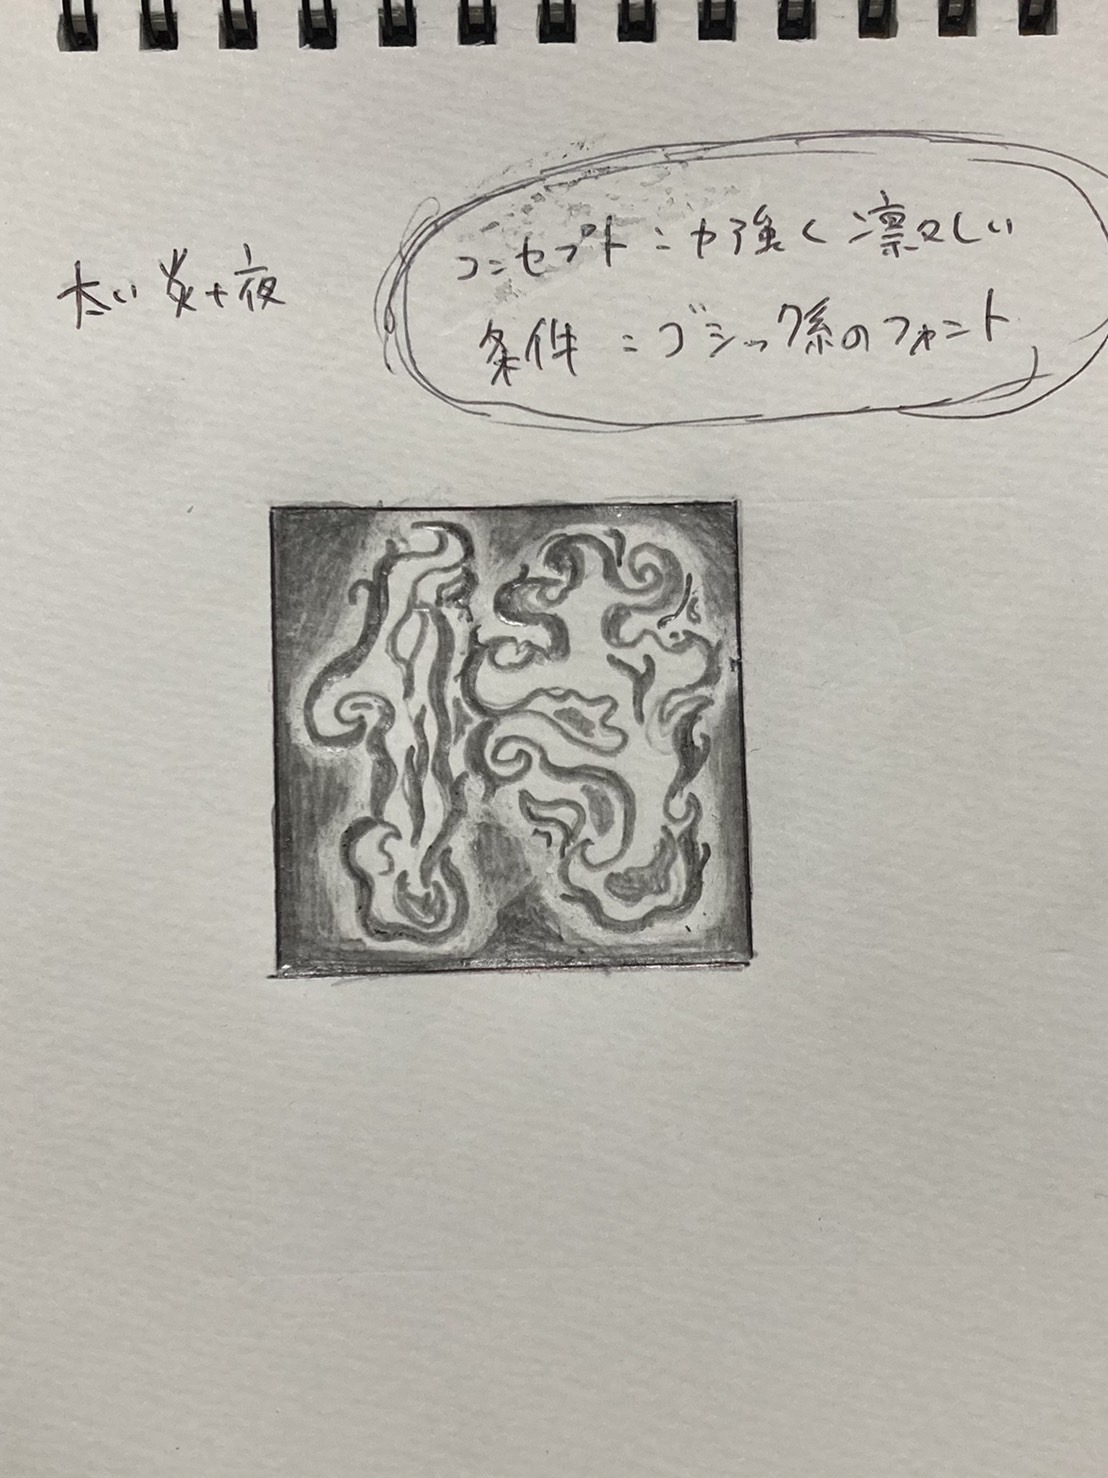 太い炎+夜
コンセプト:力強く凛々しい
条件:ゴシック系のフォント